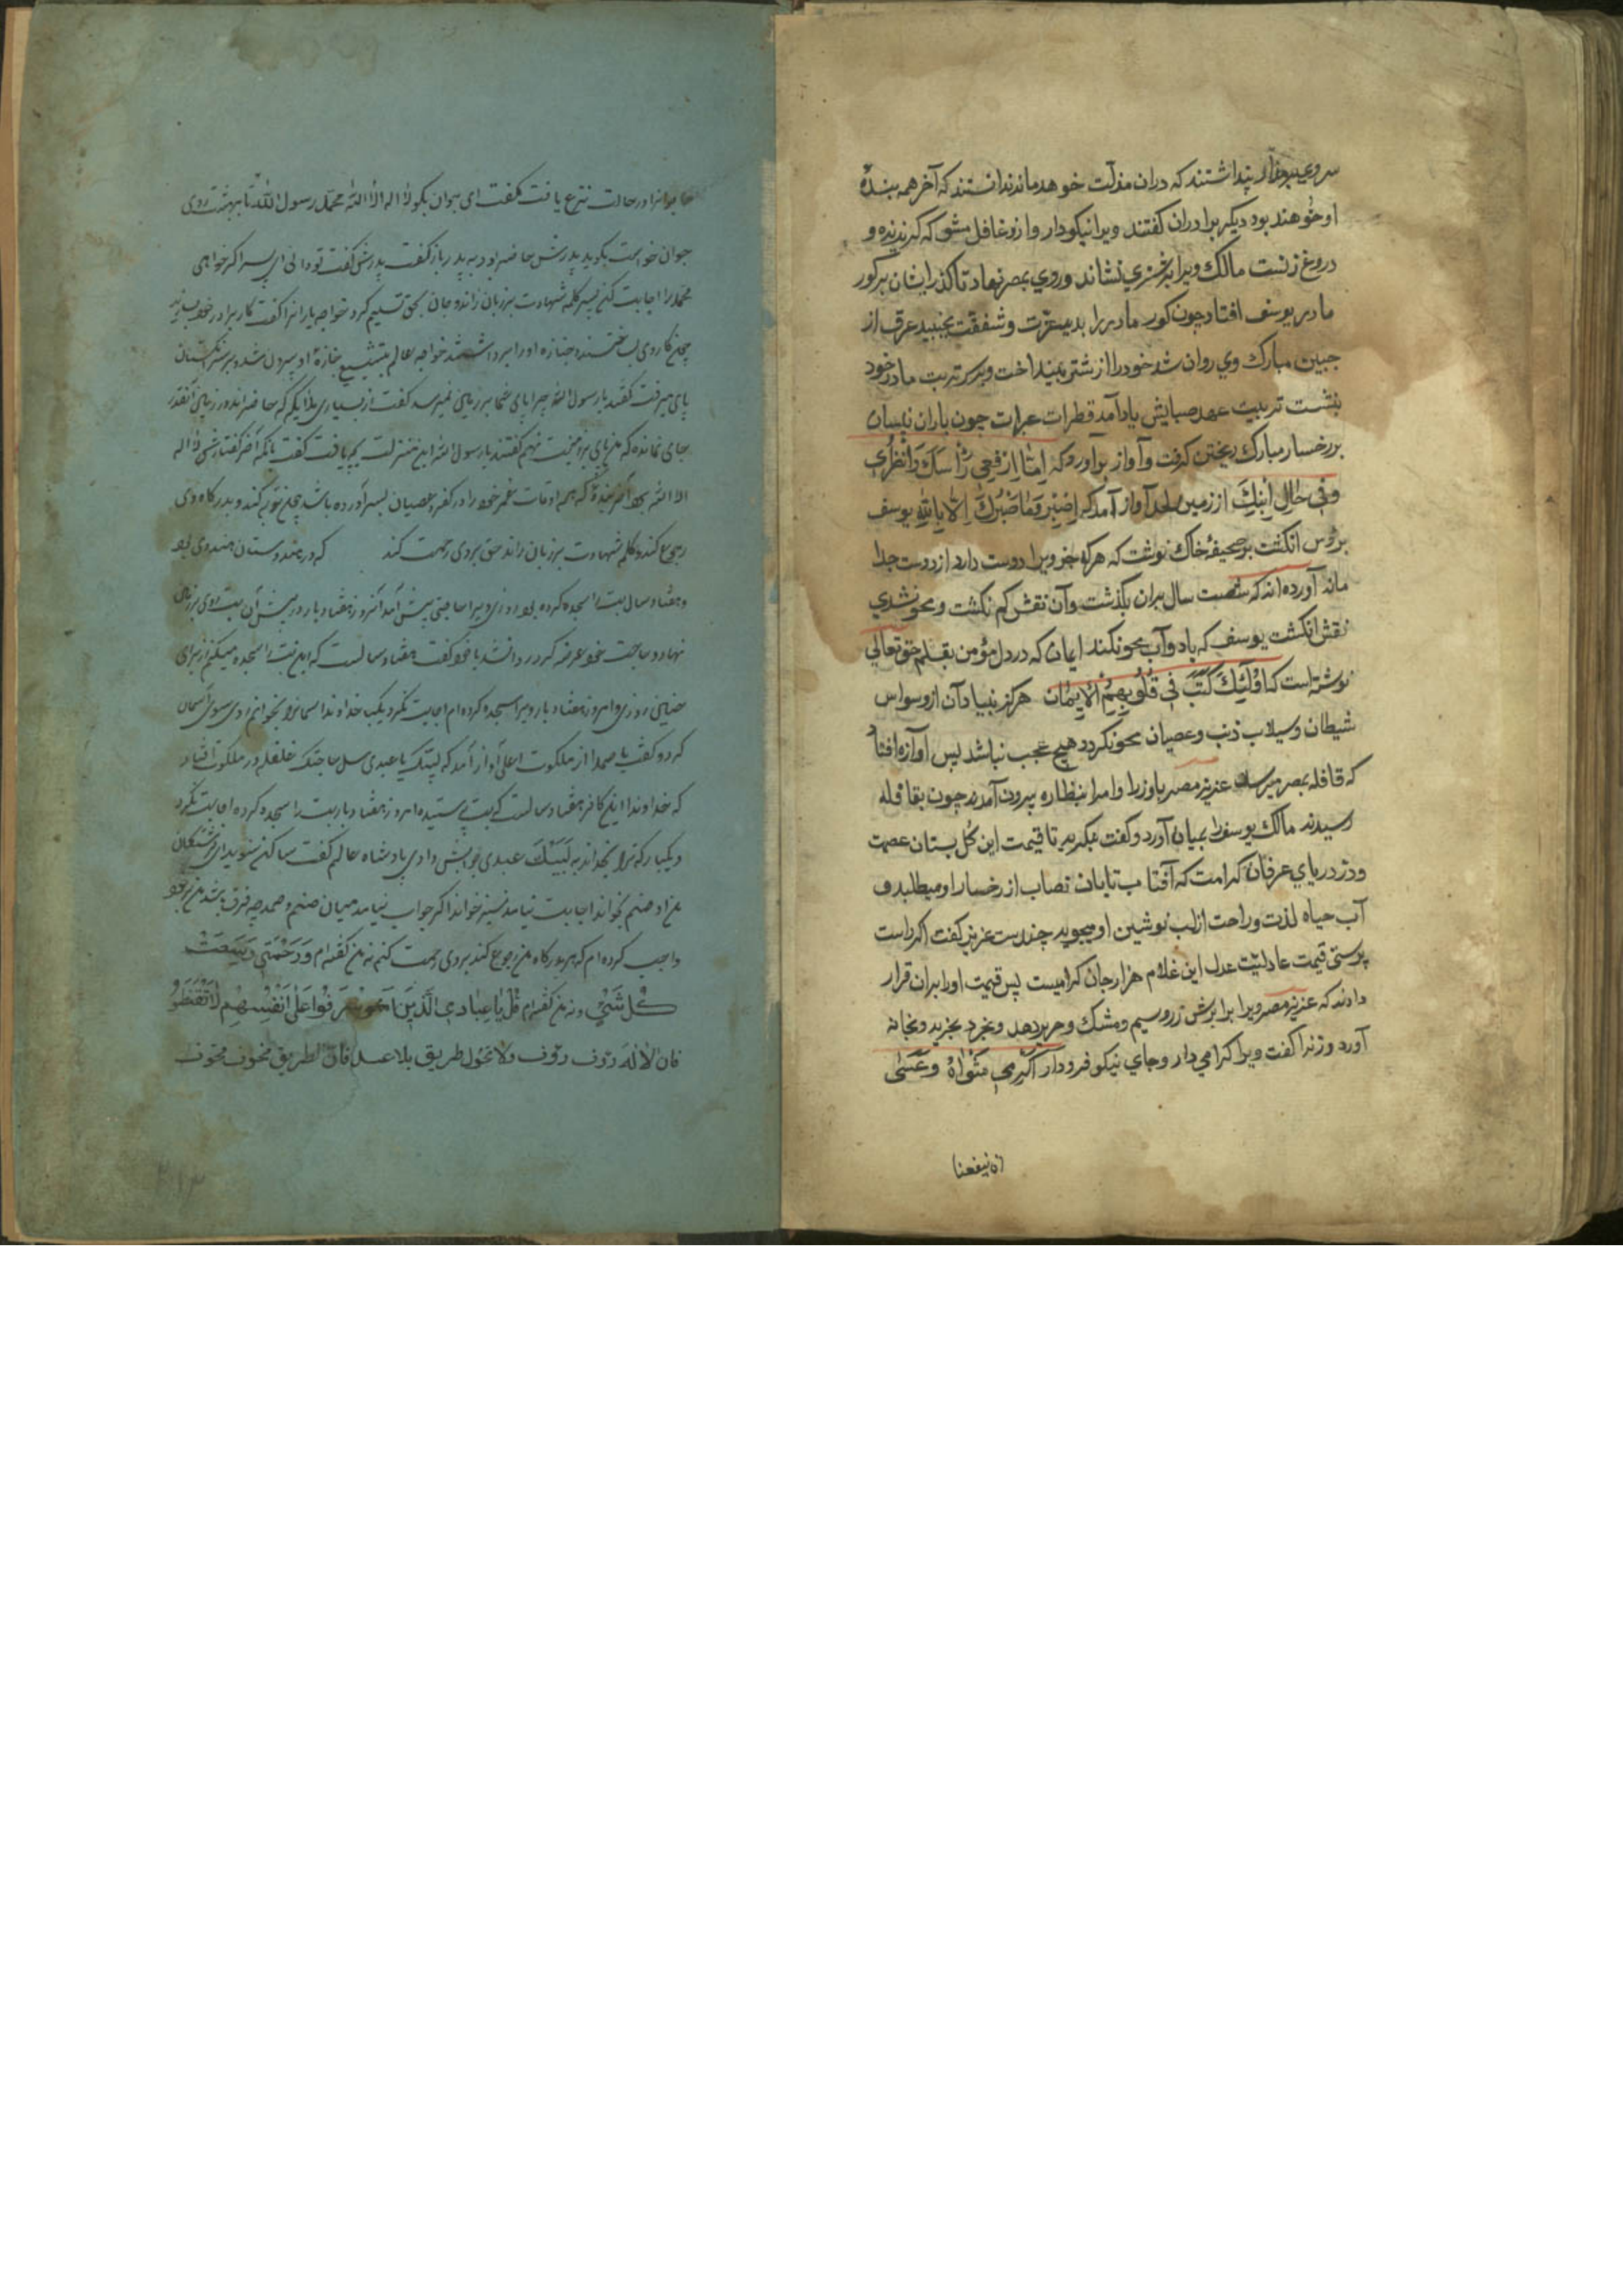 پنداشتند که دران مذلت خوهد ماند ندانستند که آخر همه بندهٔ
او خوهند بود دیکر برادران کفتند ویرا نیکو دار و ازو غافل مشو که کریزنده و
دروغ زنست مالک ویرا بر شتری نشاند وروی بمصر نهاد تا کذر ایشان بر کور
مادر یوسف افتاد چون کور مادر را بدید عزت و شفقت بجنبید عرق از
جبین مبارک وی روان شد خودرا از شتر بینداخت و بر سر تربت مادر خود
بنشست تربیت عهد صبایش یاد آمد قطرات عبرات چون باران نیسان
بر رخسار مبارک ریختن کرفت و آواز براورد که اِرْفَعِی رَأسَکَ وَانْظُرِی
وفی حال اِبْنِکَ از زمین لحد آواز آمد که اِصْبِرْ وَمَا صَبْرُکَ اِلَّا بِاللّٰهِ یوسف
انکشت بر صحیفهٔ خاک نوشت که هرکه خو ویرا دوست دارد از دوست جدا
ماند آورده‌اند که شصت سال بران بکذشت وآن نقش کم نکشت و محو نشدی
نقش انکشت یوسف که باد وآب محو نکند ایمان که در دل مؤمن بقلم حق تعالی
نوشته است که اُولٰئِکَ کَتَبَ فِی قُلُوبِهِمُ الْاِیمَانَ هرکز بنیاد آن از وسواس
شیطان وسیلاب ذنب وعصیان محو نکردد هیچ عجب نباشد پس آوازه افتاد
که قافله بمصر میرسد عزیز مصر باوزرا وامرا بنظاره بیرون آمدند چون بقافله
رسیدند مالک یوسفرا بمیان آورد وکفت بنکرید تا قیمت این کل بستان عصمت
ودر دریای عرفان کرامت که آفتاب تابان نصاب از رخسار او میطلبد و
آب حیاه لذت وراحت از لب نوشین او میجوید چندست عزیز کفت اکر راست
پرسی قیمت عادلیت عدل این غلام هزار جان کرامیست پس قیمت اورا بران قرار
دادند که عزیز مصر ویرا برابرش زر وسیم ومشک وحریر دهد وبخرد بخرید وبخانه
آورد وزنرا کفت ویرا کرامی دار وجای نیکو فرود ار اَکْرِمِی مَثْوَاهُ وعَسٰی
ان ینفعنا
در حالت نزع یافت کفت ای جوان بکو لا اله الا الله محمد رسول الله تا بهشت روی
جوان خواست بکوید پدرش حاضر بود پدرش کفت تو دانی ای پسر اکر خواهی
محمد را اجابت کن پسر کلمه شهادت بر زبان راند و جان بحق تسلیم کرد خواجه یارانرا کفت کار برادر خود بسازید
چون کار وی بساختند و جنازه اورا برداشتند خواجه عالم بتشییع جنازهٔ او بیرون شد
پای میرفت کفتند یا رسول الله چرا پای شما بر زمین نمیرسد کفت از بسیاری ملایکه که حاضراند در زمین آنقدر
جای نمانده که من پای بر زمین نهم کفتند یا رسول الله این منزلت بچه یافت کفت بآنکه آخر کفتارش لا اله
الا الله بود بندهٔ که همه اوقات عمر خود را در کفر وعصیان بسر آورده باشد چون توبه کند و بدرکاه وی
رجوع کند وکلمه شهادت بر زبان راند حق بروی رحمت کند که در هندوستان هندوی بود
وهفتاد سال بت را سجده کرده بود روزی ویرا حاجتی پیش آمد آنروز هفتاد بار در پیش آن بت روی بر زمین
نهاد وحاجت خود عرضه کرد روا نشد با خود کفت هفتاد سالست که این بت را سجده میکنم از برای
چنین روزی وامروز هفتاد بار ویرا سجده کرده‌ام اجابت نکرد یکبار خداوند آسمانرا بخوانم روی سوی آسمان
کرد وکفت یا صمد از ملکوت اعلی آواز آمد که لبیک یا عبدی سل حاجتک غلغله در ملکوت افتاد
که خداوندا این کافر هفتاد سالست که بت پرستیده امروز هفتاد بار بت را سجده کرده اجابت نکرد
ویکبار که ترا بخواند به لَبَّیْکَ عبدی جوابش دادی پادشاه عالم کفت ساکن شوید ای فرشتکان
من او صنم بخواند اجابت نیامد نیز خواند اکر جواب نیامد میان صنم وصمد چه فرق باشد من بر خود
واجب کرده‌ام که هر که بدرکاه من رجوع کند بروی رحمت کنم نه من کفته‌ام وَرَحْمَتِی وَسِعَتْ
کُلَّ شَیْءٍ ونه من کفته‌ام قُلْ یَا عِبَادِیَ الَّذِینَ اَسْرَفُوا عَلٰی اَنْفُسِهِمْ لَا تَقْنَطُوا
فان الاله رؤف رؤف ولا تحول طریق بلا عمل فان الطریق مخوف مخوف